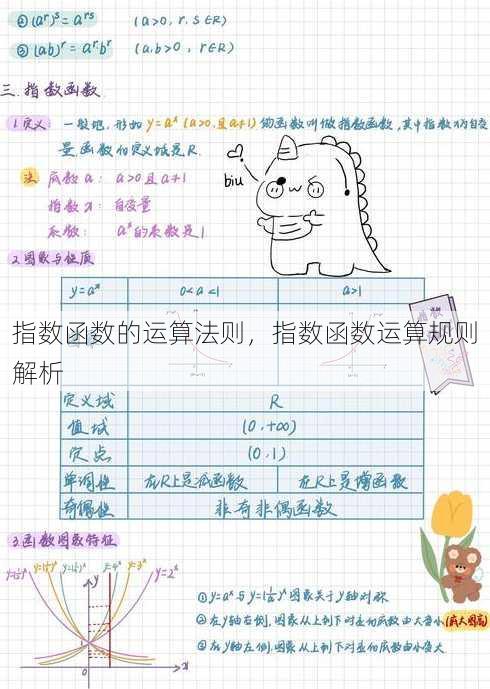 ②(aʳ)ˢ=aʳˢ (a>0, r.s∈R)
③(ab)ʳ=aʳ·bʳ (a.b>0, r∈R)
三.指数函数
1.定义: 一般地,形如y=aˣ(a>0,且a≠1)的函数叫做指数函数,其中指数x为自变
量,函数的定义域是R.
注 底数a: a>0且a≠1
指数x: 自变量
系数: aˣ的系数是1
biu
2.图象与性质
y=aˣ 0<a<1 a>1
指数函数的运算法则，指数函数运算规则
解析
定义域 R
值域 (0,+∞)
定点 (0,1)
单调性 在R上是减函数 在R上是增函数
奇偶性 非奇非偶函数
3.函数图象特征
y=4ˣ y=3ˣ y=2ˣ
y
1
0 x
①y=aˣ与y=(1/a)ˣ图象关于y轴对称
②在y轴右侧,图象从上到下对应的底数由大变小(底大图高)
③在y轴左侧,图象从上到下对应的底数由小变大